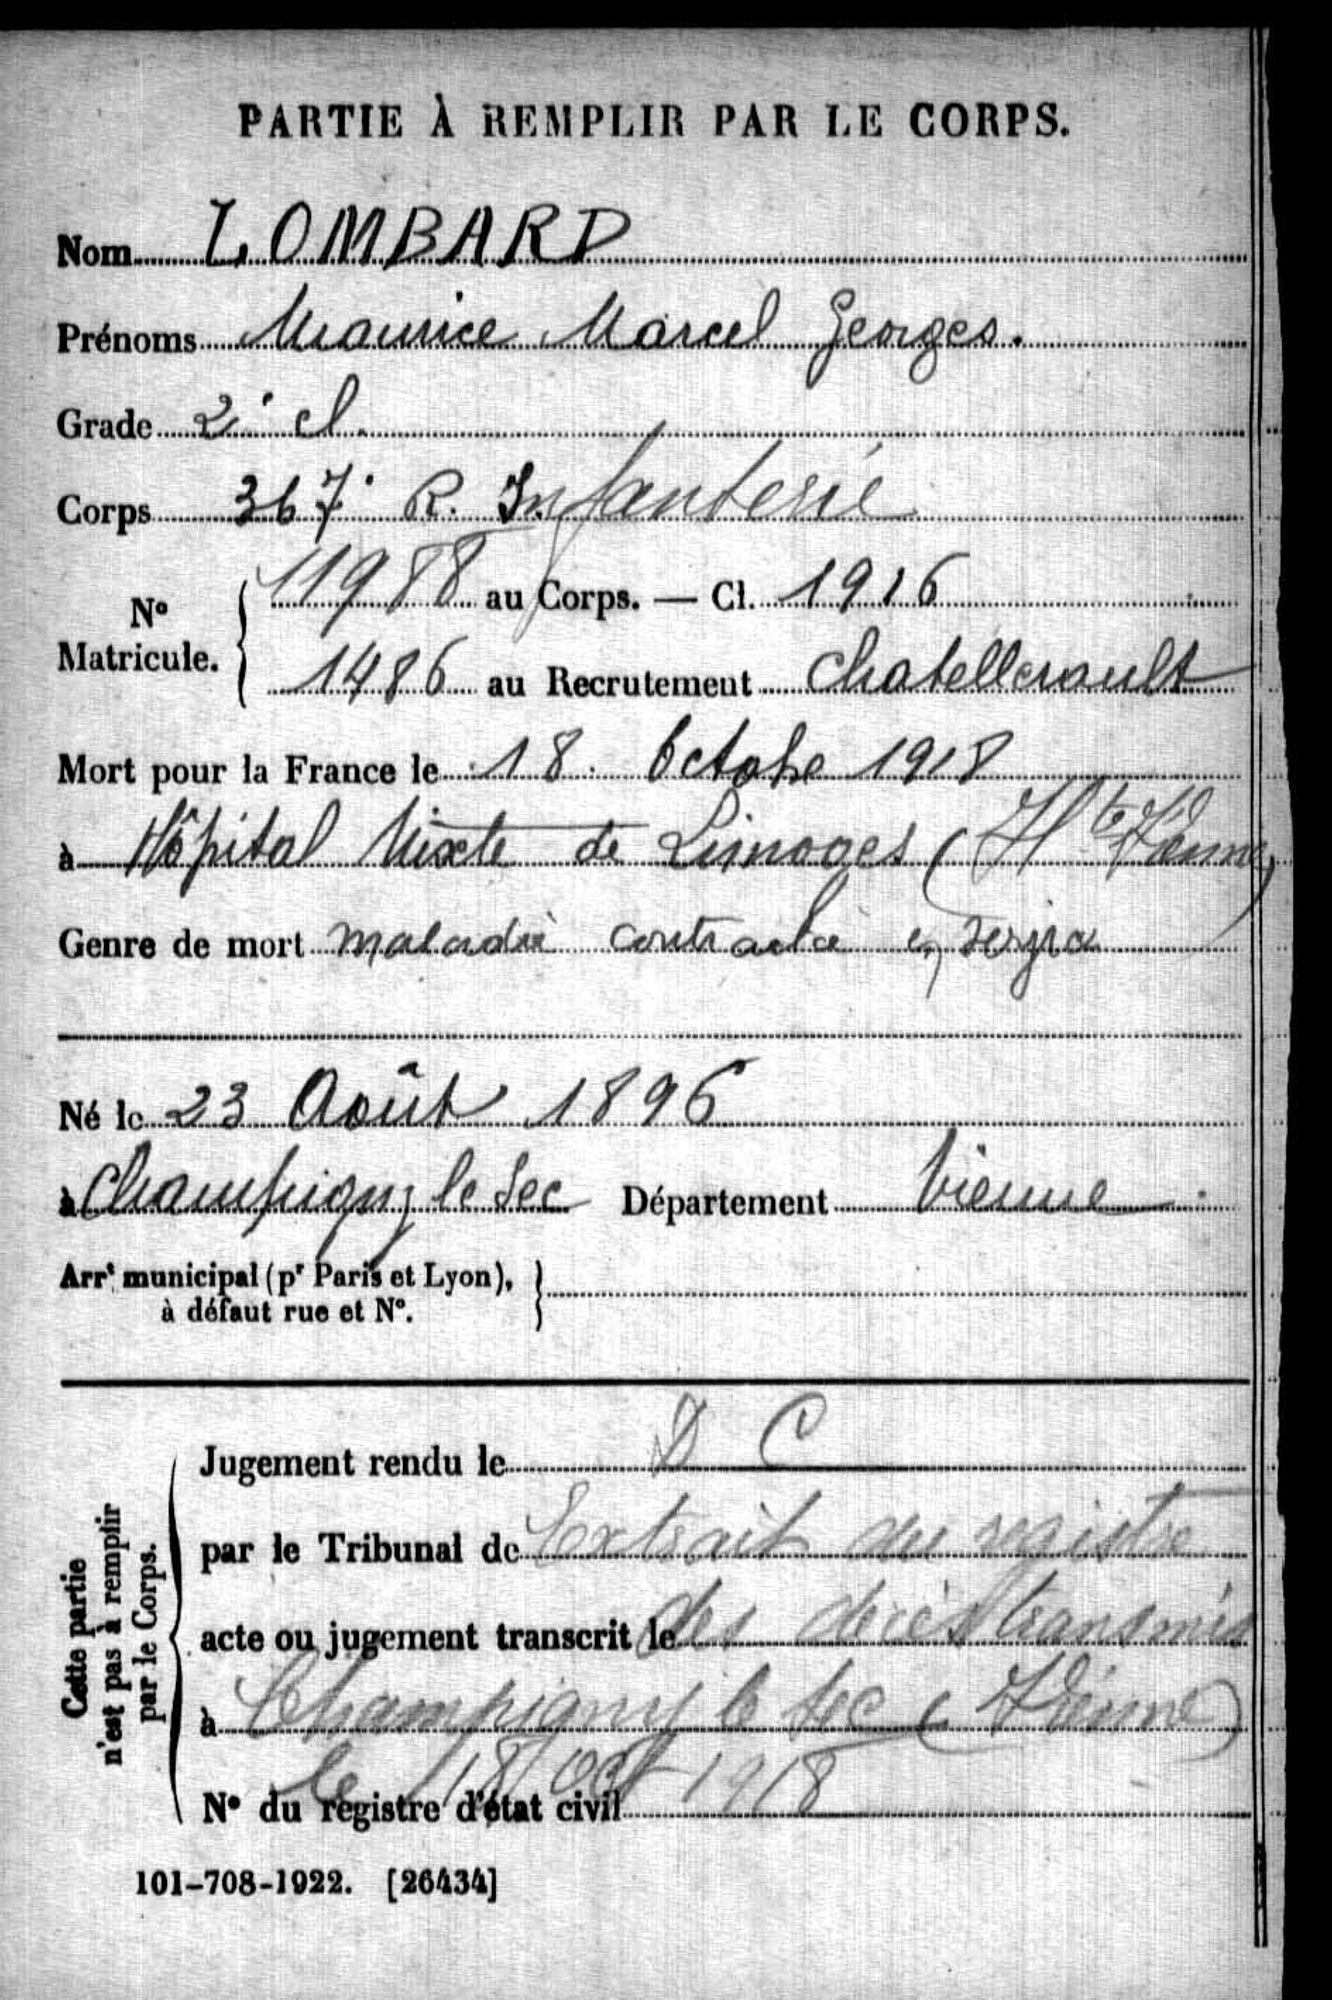 PARTIE À REMPLIR PAR LE CORPS.
Nom LOMBARD
Prénoms Maurice Marcel Georges.
Grade 2e cl.
Corps 367e R. Infanterie
No Matricule. 11988 au Corps. — Cl. 1916
1486 au Recrutement Chatellerault
Mort pour la France le 18 Octobre 1918
à Hôpital Mixte de Limoges (Hte Vienne)
Genre de mort maladie contractée en service
Né le 23 Août 1896
à Champigny le Sec Département Vienne
Arrt municipal (pr Paris et Lyon),
à défaut rue et No.
Cette partie
n'est pas à remplir
par le Corps.
Jugement rendu le D C
par le Tribunal de Extrait du registre
acte ou jugement transcrit le des décès transmis
à Champigny le Sec (Vienne)
le 18 Oct 1918
No du registre d'état civil
101-708-1922. [26434]